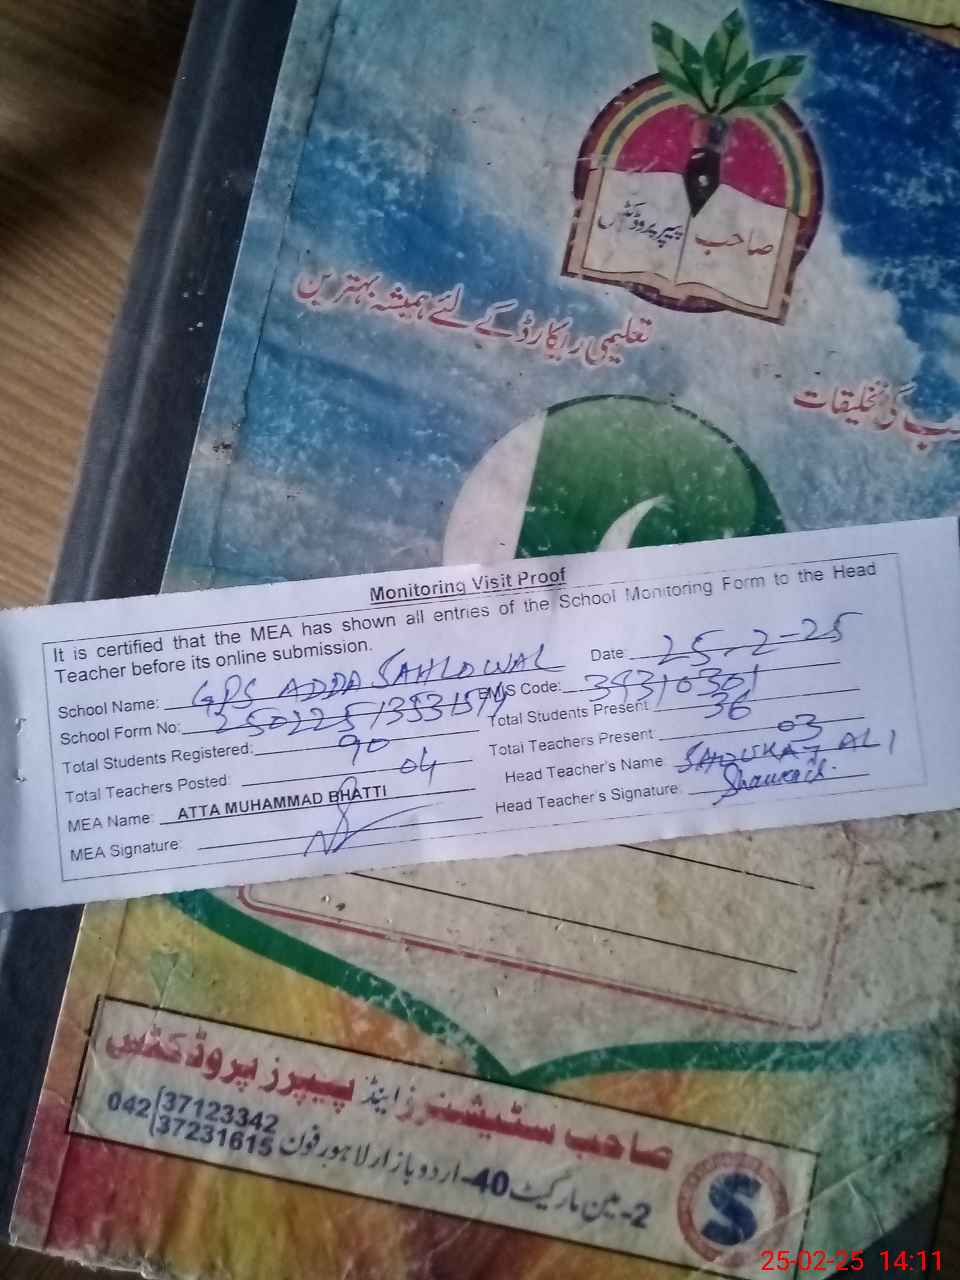 صاحب پیپر پروڈکٹس
تعلیمی ریکارڈ کے لئے ہمیشہ بہترین
کی تخلیقات
Monitoring Visit Proof
It is certified that the MEA has shown all entries of the School Monitoring Form to the Head
Teacher before its online submission.
School Name: GPS ADDA SAHLOWAL Date: 25-2-25
School Form No: EMIS Code: 39310301
Total Students Registered: 90 Total Students Present 36
Total Teachers Posted: 04 Total Teachers Present 03
MEA Name: ATTA MUHAMMAD BHATTI Head Teacher's Name SHOUKAT ALI
MEA Signature: Head Teacher's Signature:
صاحب سٹیشنرز اینڈ پیپرز پروڈکٹس
2-مین مارکیٹ 40-اردو بازار لاہور فون 042 37123342
37231615
S
25-02-25 14:11